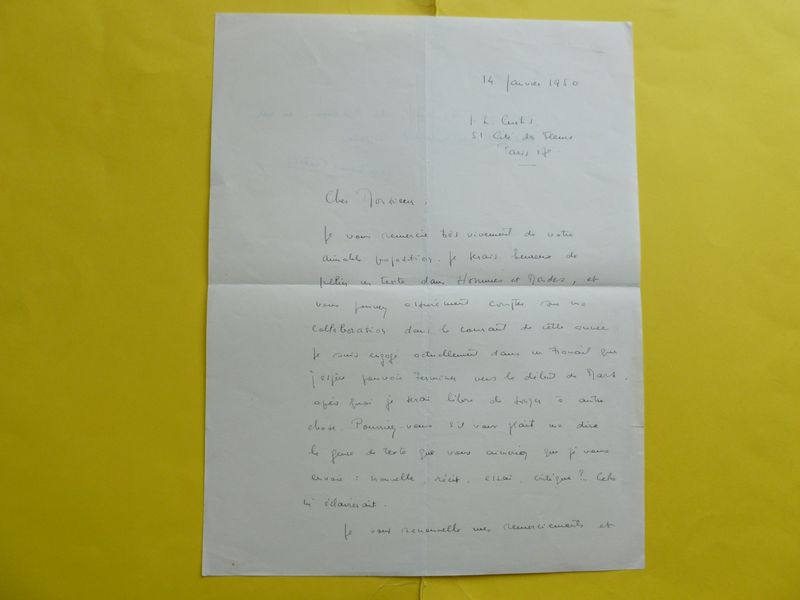 14 Janvier 1950
J. L. Curtis
51 Cité des Fleurs
Paris 17e
Cher Monsieur,
Je vous remercie très vivement de votre
aimable proposition. Je serais heureux de
publier un texte dans Hommes et Mondes, et
vous pouvez assurément compter sur ma
collaboration dans le courant de cette année
Je suis engagé actuellement dans un travail que
j'espère pouvoir terminer vers le début de Mars
après quoi je serai libre de songer à autre
chose. Pourriez-vous s'il vous plaît me dire
le genre de texte que vous aimeriez que je vous
envoie : nouvelle, récit, essai, critique ? Cela
m'éclairerait.
Je vous renouvelle mes remerciements et